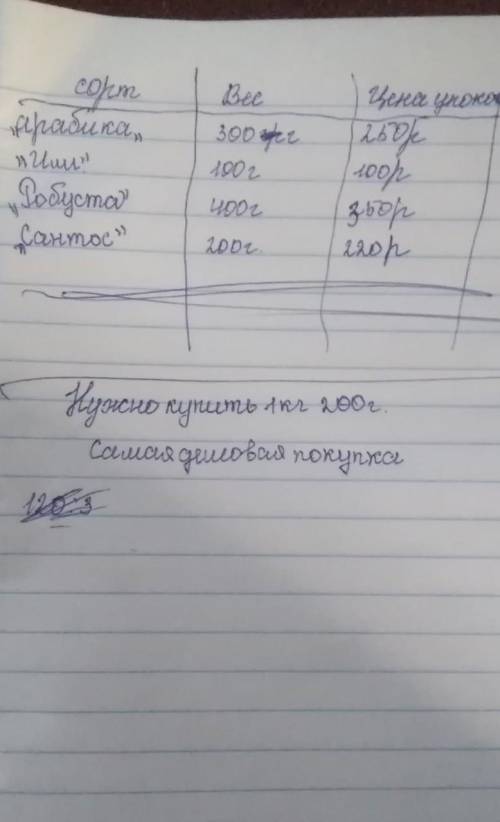 сорт Вес Цена упако
„арабика„ 300 г 250р
"Или" 100г 100р
„Робуста" 400г 350р
„Сантос" 200г. 220р
Нужно купить 1кг 200г.
Самая дешовая покупка